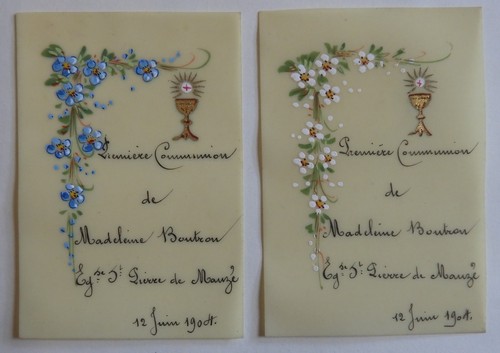 Première Communion
de
Madeleine Boutron
Egse St Pierre de Mauzé
12 Juin 1904.
Première Communion
de
Madeleine Boutron
Egse St Pierre de Mauzé
12 Juin 1904.